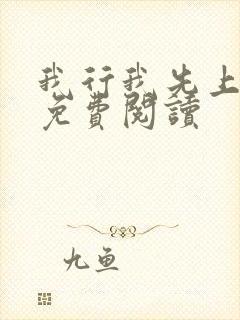 我行我先上
免費閱讀
九魚